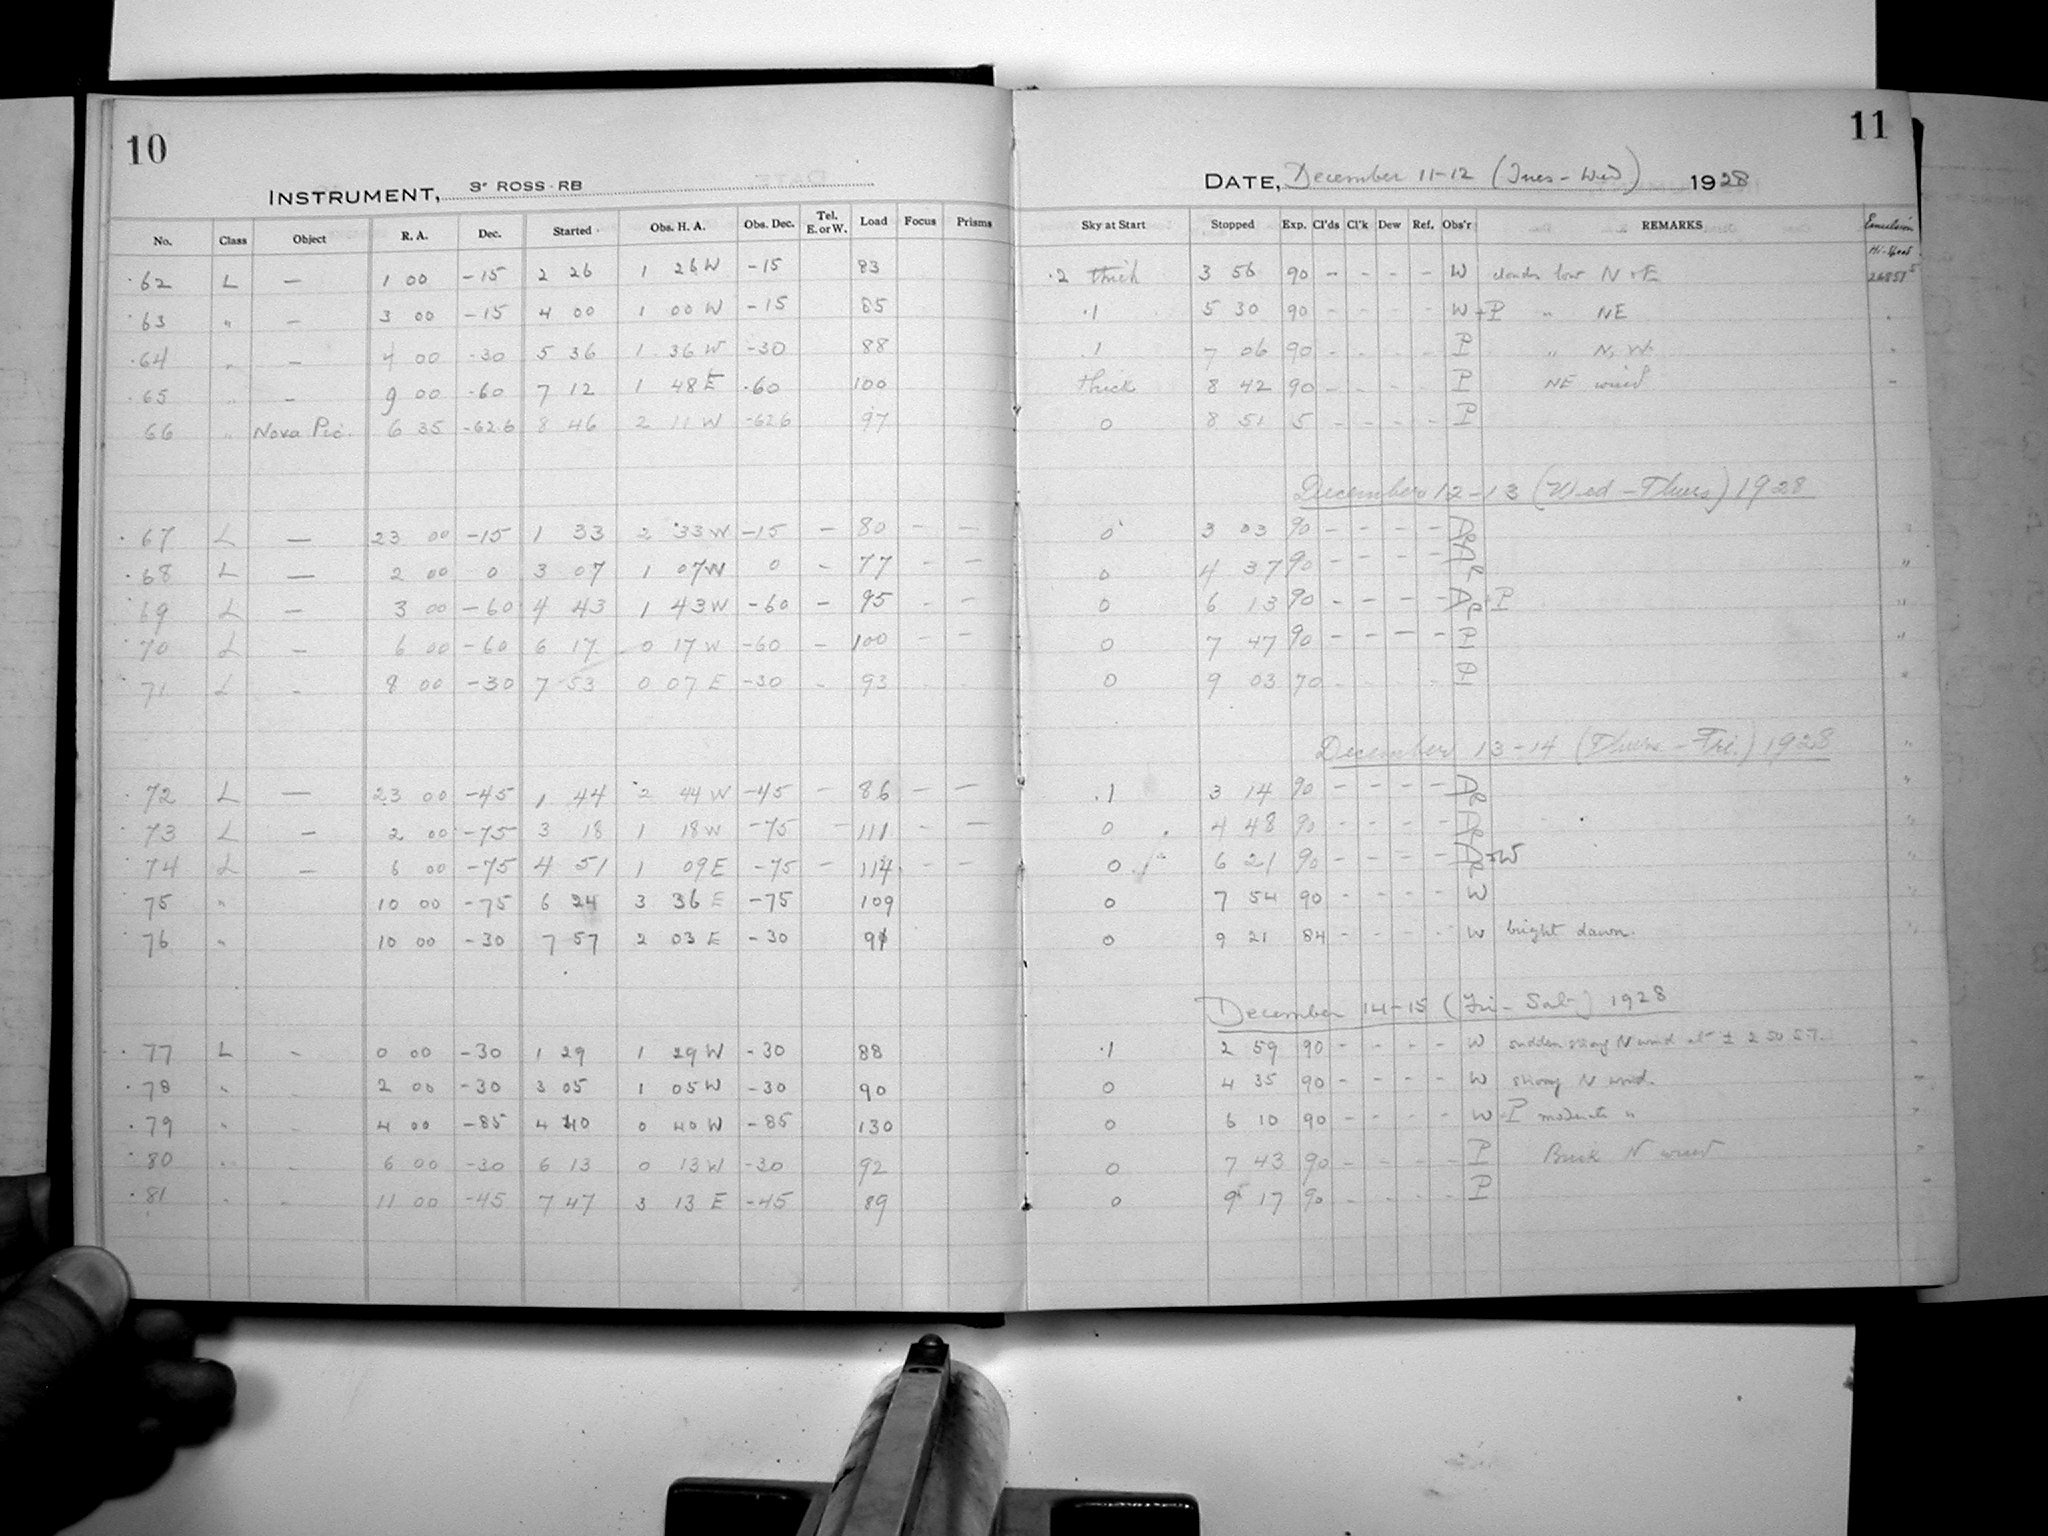 10
INSTRUMENT, 3" ROSS-RB
No. Class Object R. A. Dec. Started Obs. H. A. Obs. Dec. Tel. E. or W. Load Focus Prisms
62 L — 1 00 -15 2 26 1 26 W -15 83
63 " — 3 00 -15 4 00 1 00 W -15 85
64 " — 4 00 -30 5 36 1 36 W -30 88
65 " — 9 00 -60 7 12 1 48 E -60 100
66 " Nova Pic. 6 35 -62.6 8 46 2 11 W -62.6 97
67 L — 23 00 -15 1 33 2 33 W -15 — 80 — —
68 L — 2 00 0 3 07 1 07 W 0 — 77 — —
69 L — 3 00 -60 4 43 1 43 W -60 — 95 — —
70 L — 6 00 -60 6 17 0 17 W -60 — 100 — —
71 L — 8 00 -30 7 53 0 07 E -30 — 93
72 L — 23 00 -45 1 44 2 44 W -45 — 86 — —
73 L — 2 00 -75 3 18 1 18 W -75 — 111 — —
74 L — 6 00 -75 4 51 1 09 E -75 — 114 — —
75 " 10 00 -75 6 24 3 36 E -75 109
76 " 10 00 -30 7 57 2 03 E -30 91
77 L — 0 00 -30 1 29 1 29 W -30 88
78 " — 2 00 -30 3 05 1 05 W -30 90
79 " — 4 00 -85 4 40 0 40 W -85 130
80 " — 6 00 -30 6 13 0 13 W -30 92
81 " — 11 00 -45 7 47 3 13 E -45 89
11
DATE, December 11-12 (Tues - Wed) 1928
Sky at Start Stopped Exp. Cl'ds Cl'k Dew Ref. Obs'r REMARKS Emulsion
.2 thick 3 56 90 - - - - W clouds low N + E
.1 5 30 90 - - - - W + P " NE
.1 7 06 90 - - - - P " N, W
thick 8 42 90 - - - - P NE wind
0 8 51 5 - - - - P
December 12-13 (Wed - Thurs) 1928
0 3 03 90 - - - -
0 4 37 90 - - - -
0 6 13 90 - - - - + P
0 7 47 90 - - - - P
0 9 03 70 - - - - P
December 13-14 (Thurs - Fri.) 1928
.1 3 14 90 - - - -
0 4 48 90 - - - -
0 6 21 90 - - - - + W
0 7 54 90 - - - - W
0 9 21 84 - - - - W bright dawn.
December 14-15 (Fri - Sat) 1928
.1 2 59 90 - - - - W sudden strong N wind at ± 2 50 S.T.
0 4 35 90 - - - - W strong N wind.
0 6 10 90 - - - - W + P moderate "
0 7 43 90 - - - - P Brisk N wind
0 9 17 90 - - - - P